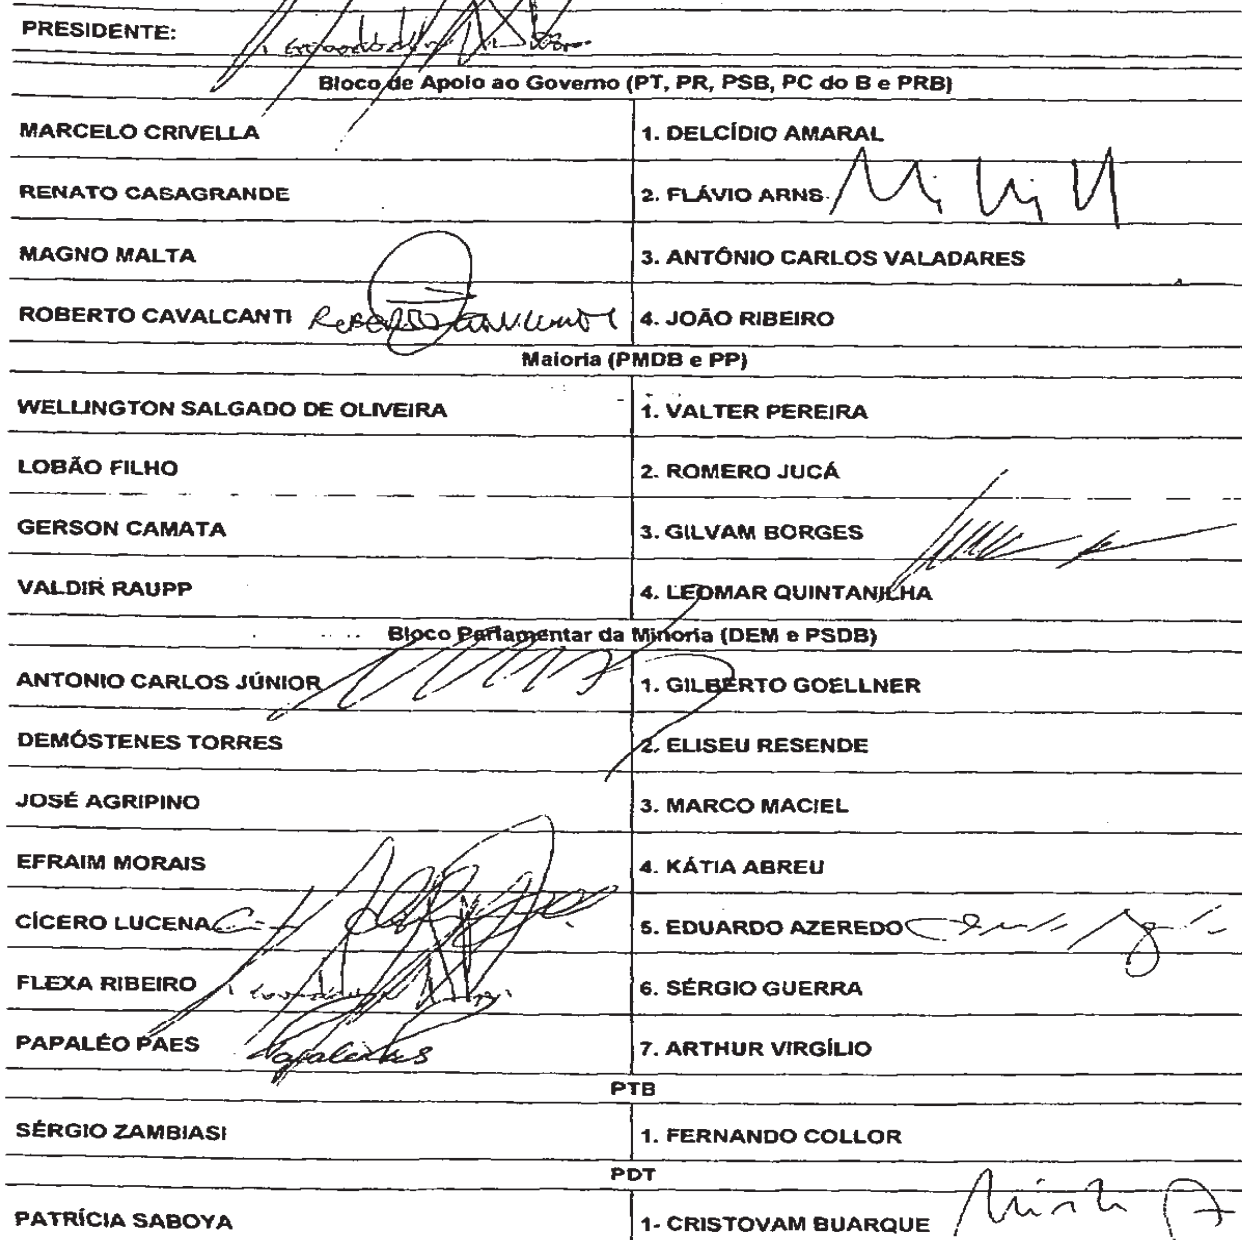 PRESIDENTE:
Bloco de Apoio ao Governo (PT, PR, PSB, PC do B e PRB)
MARCELO CRIVELLA 1. DELCÍDIO AMARAL
RENATO CASAGRANDE 2. FLÁVIO ARNS
MAGNO MALTA 3. ANTÔNIO CARLOS VALADARES
ROBERTO CAVALCANTI Roberto Cavalcanti 4. JOÃO RIBEIRO
Maioria (PMDB e PP)
WELLINGTON SALGADO DE OLIVEIRA 1. VALTER PEREIRA
LOBÃO FILHO 2. ROMERO JUCÁ
GERSON CAMATA 3. GILVAM BORGES
VALDIR RAUPP 4. LEOMAR QUINTANILHA
Bloco Parlamentar da Minoria (DEM e PSDB)
ANTONIO CARLOS JÚNIOR 1. GILBERTO GOELLNER
DEMÓSTENES TORRES 2. ELISEU RESENDE
JOSÉ AGRIPINO 3. MARCO MACIEL
EFRAIM MORAIS 4. KÁTIA ABREU
CÍCERO LUCENA 5. EDUARDO AZEREDO
FLEXA RIBEIRO 6. SÉRGIO GUERRA
PAPALÉO PAES 7. ARTHUR VIRGÍLIO
PTB
SÉRGIO ZAMBIASI 1. FERNANDO COLLOR
PDT
PATRÍCIA SABOYA 1- CRISTOVAM BUARQUE